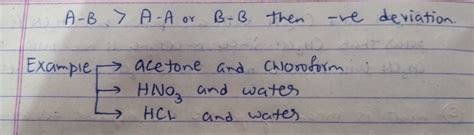 A-B > A-A or B-B. then -ve deviation.
Example → acetone and chloroform
→ HNO₃ and water
→ HCl and water